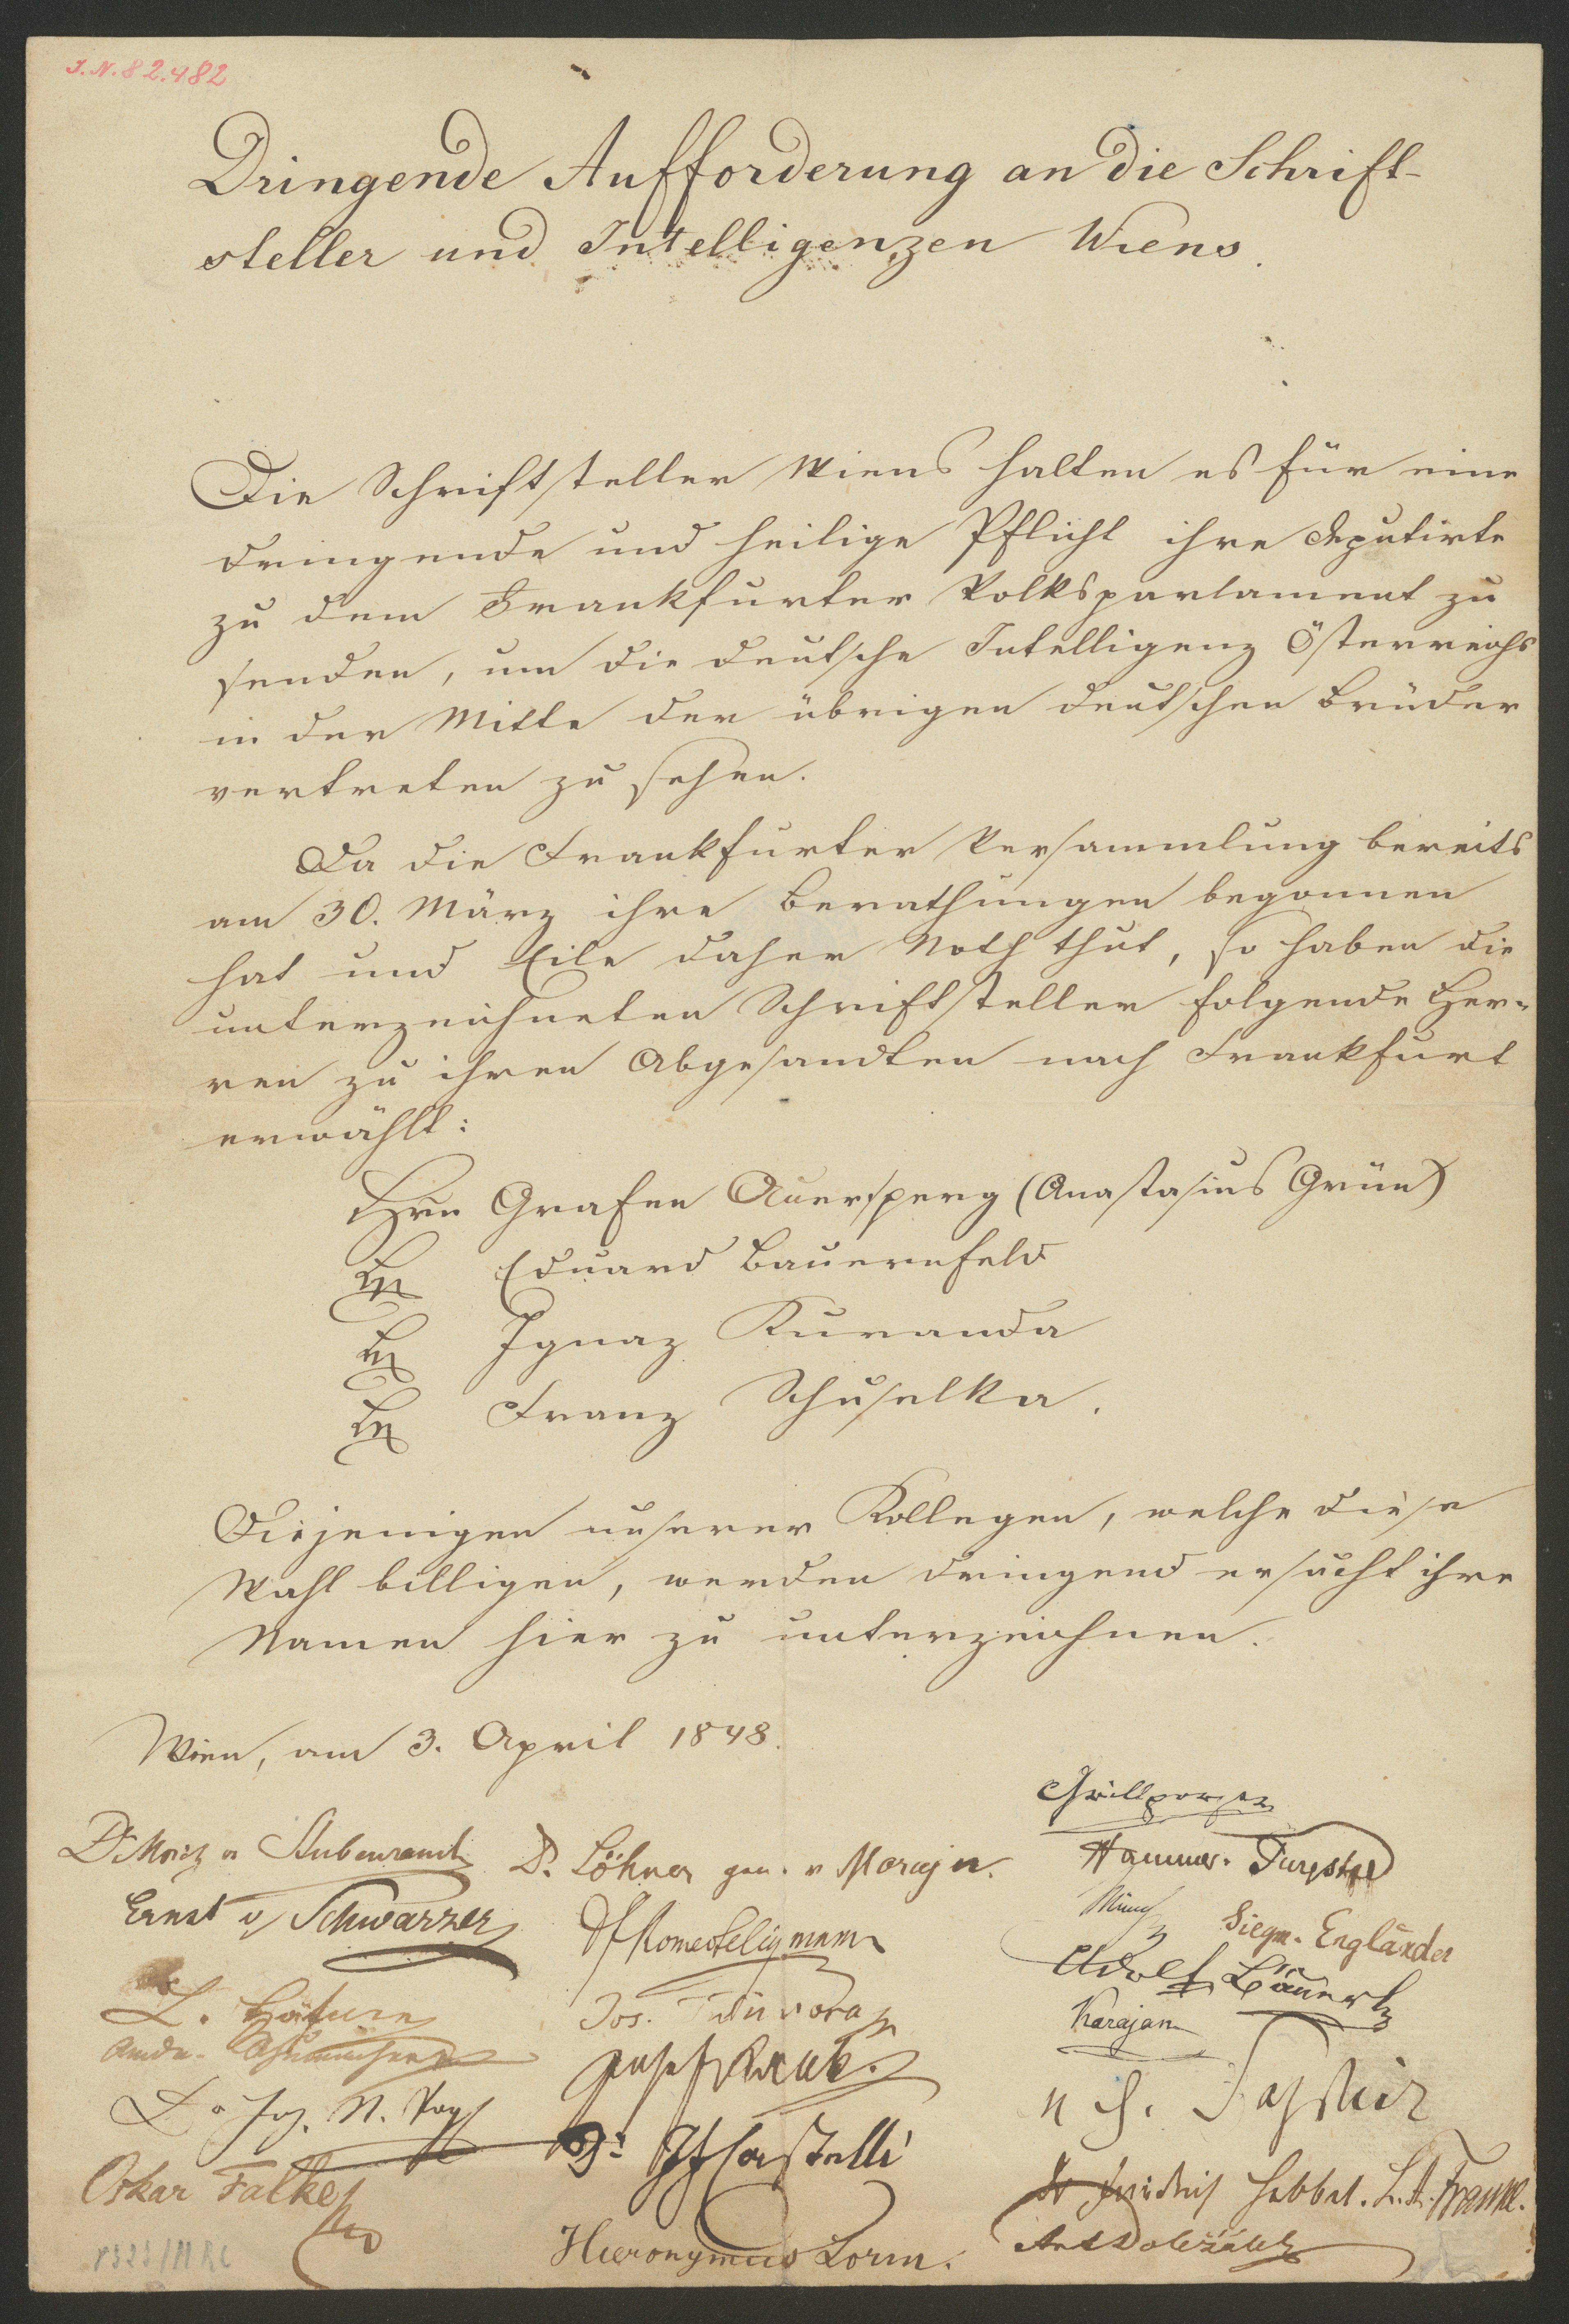 I. N. 82.482
Dringende Aufforderung an die Schrift-
steller und Intelligenzen Wiens.
Die Schriftsteller Wiens halten es für eine
dringende und heilige Pflicht ihre Deputirte
zu dem Frankfurter Volksparlament zu
senden, um die deutsche Intelligenz Österreichs
in der Mitte der übrigen deutschen Brüder
vertreten zu sehen.
Da die Frankfurter Versammlung bereits
am 30. März ihre Berathungen begonnen
hat und Eile daher Noth thut, so haben die
unterzeichneten Schriftsteller folgende Her-
ren zu ihren Abgesandten nach Frankfurt
erwählt:
Hrn Grafen Auersperg (Anastasius Grün)
Eduard Bauernfeld
Ignaz Kuranda
Franz Schuselka.
Diejenigen unserer Kollegen, welche diese
Wahl billigen, werden dringend ersucht ihre
Namen hier zu unterzeichnen.
Wien, am 3. April 1848.
Grillparzer
Dr Moriz v Stubenrauch
D. Löhner
Hammer-Purgstall
Ernst v Schwarzer
Romeo Seligmann
Siegm. Engländer
Adolf Bäuerle
Jos. Tuvora
Karajan
Josef Rank.
Dr Joh. N. Vogl
Dr I F Castelli
Oskar Falke
Dr Friedrich Hebbel. L. A. Frankl.
Hieronymus Lorm.